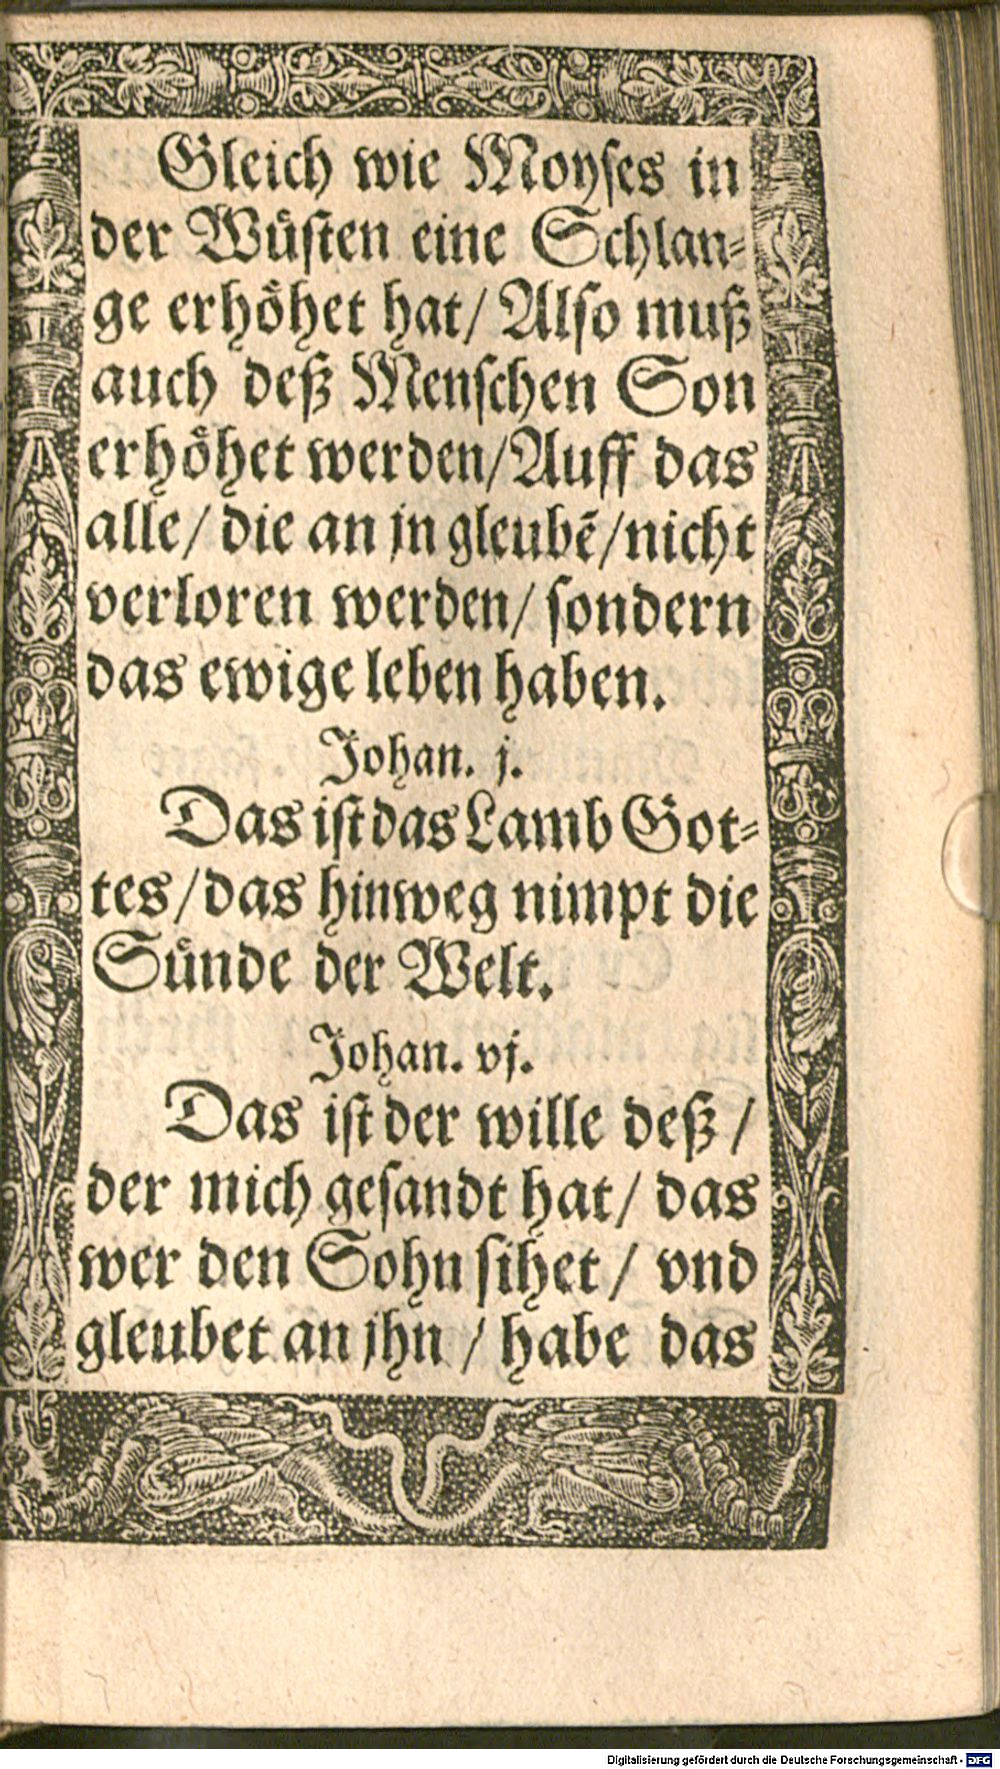 Gleich wie Moyses in
der Wüſten eine Schlan⸗
ge erhöhet hat/ Alſo muß
auch deß Menſchen Son
erhöhet werden/ Auff das
alle/ die an jn gleubẽ/ nicht
verloren werden/ ſondern
das ewige leben haben.
Johan. j.
Das iſt das Lamb Got⸗
tes/ das hinweg nimpt die
Sünde der Welt.
Johan. vj.
Das iſt der wille deß /
der mich geſandt hat/ das
wer den Sohn ſihet / vnd
gleubet an jhn / habe das
Digitalisierung gefördert durch die Deutsche Forschungsgemeinschaft - DFG